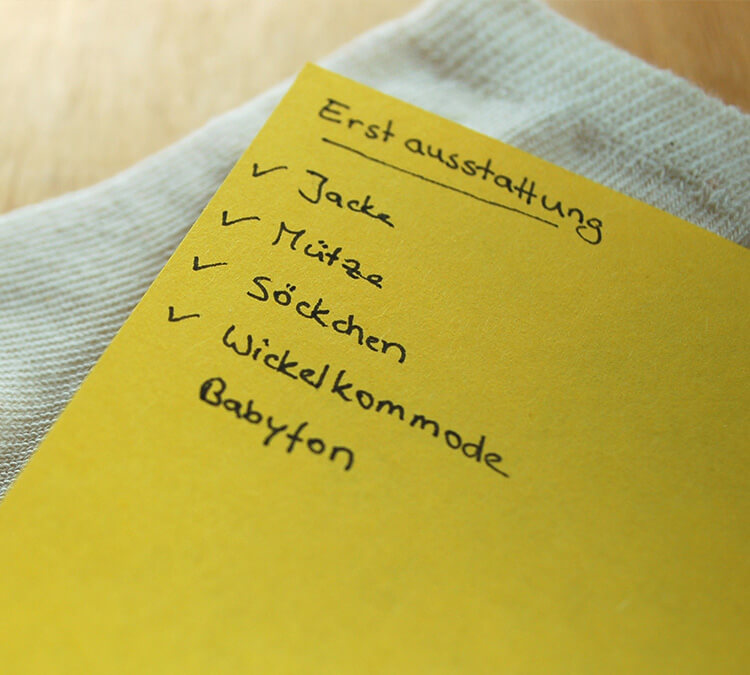 Erstausstattung
✓ Jacke
✓ Mütze
✓ Söckchen
✓ Wickelkommode
Babyfon